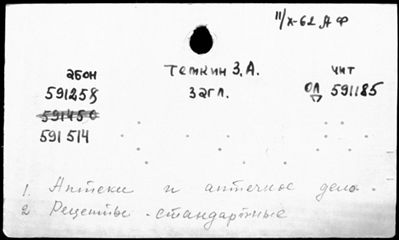 11/X-62 АФ
абон Темкин З.А. чит
591258 Загл. ОЛ 591185
591514
1. Аптеки и аптечное дело.
2 Рецепты - стандартные